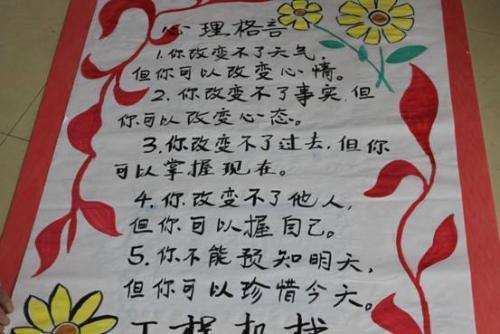 心理格言
1.你改变不了天气，
但你可以改变心情。
2.你改变不了事实，但
你可以改变心态。
3.你改变不了过去，但你
可以掌握现在。
4.你改变不了他人，
但你可以握自己。
5.你不能预知明天，
但你可以珍惜今天。
工程机械